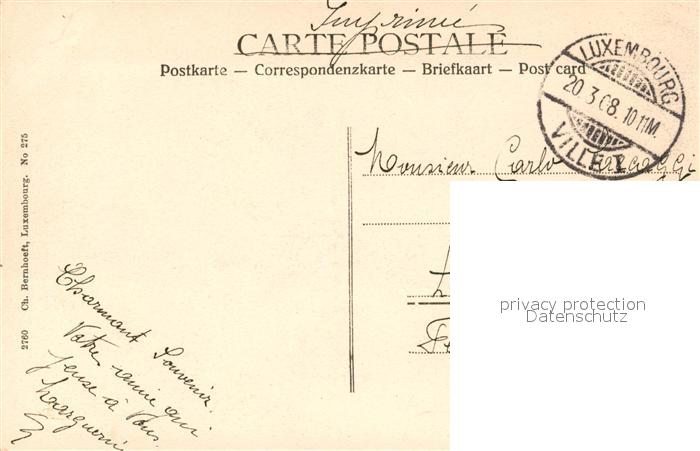 Imprimé
CARTE POSTALE
Postkarte — Correspondenzkarte — Briefkaart — Post card
LUXEMBOURG
20.3.08.10 HM
VILLE 1
Monsieur Carlo
privacy protection
Datenschutz
2760 Ch. Bernhoeft, Luxembourg. No 275
Charmant Souvenir.
Votre amie qui
pense à Vous.